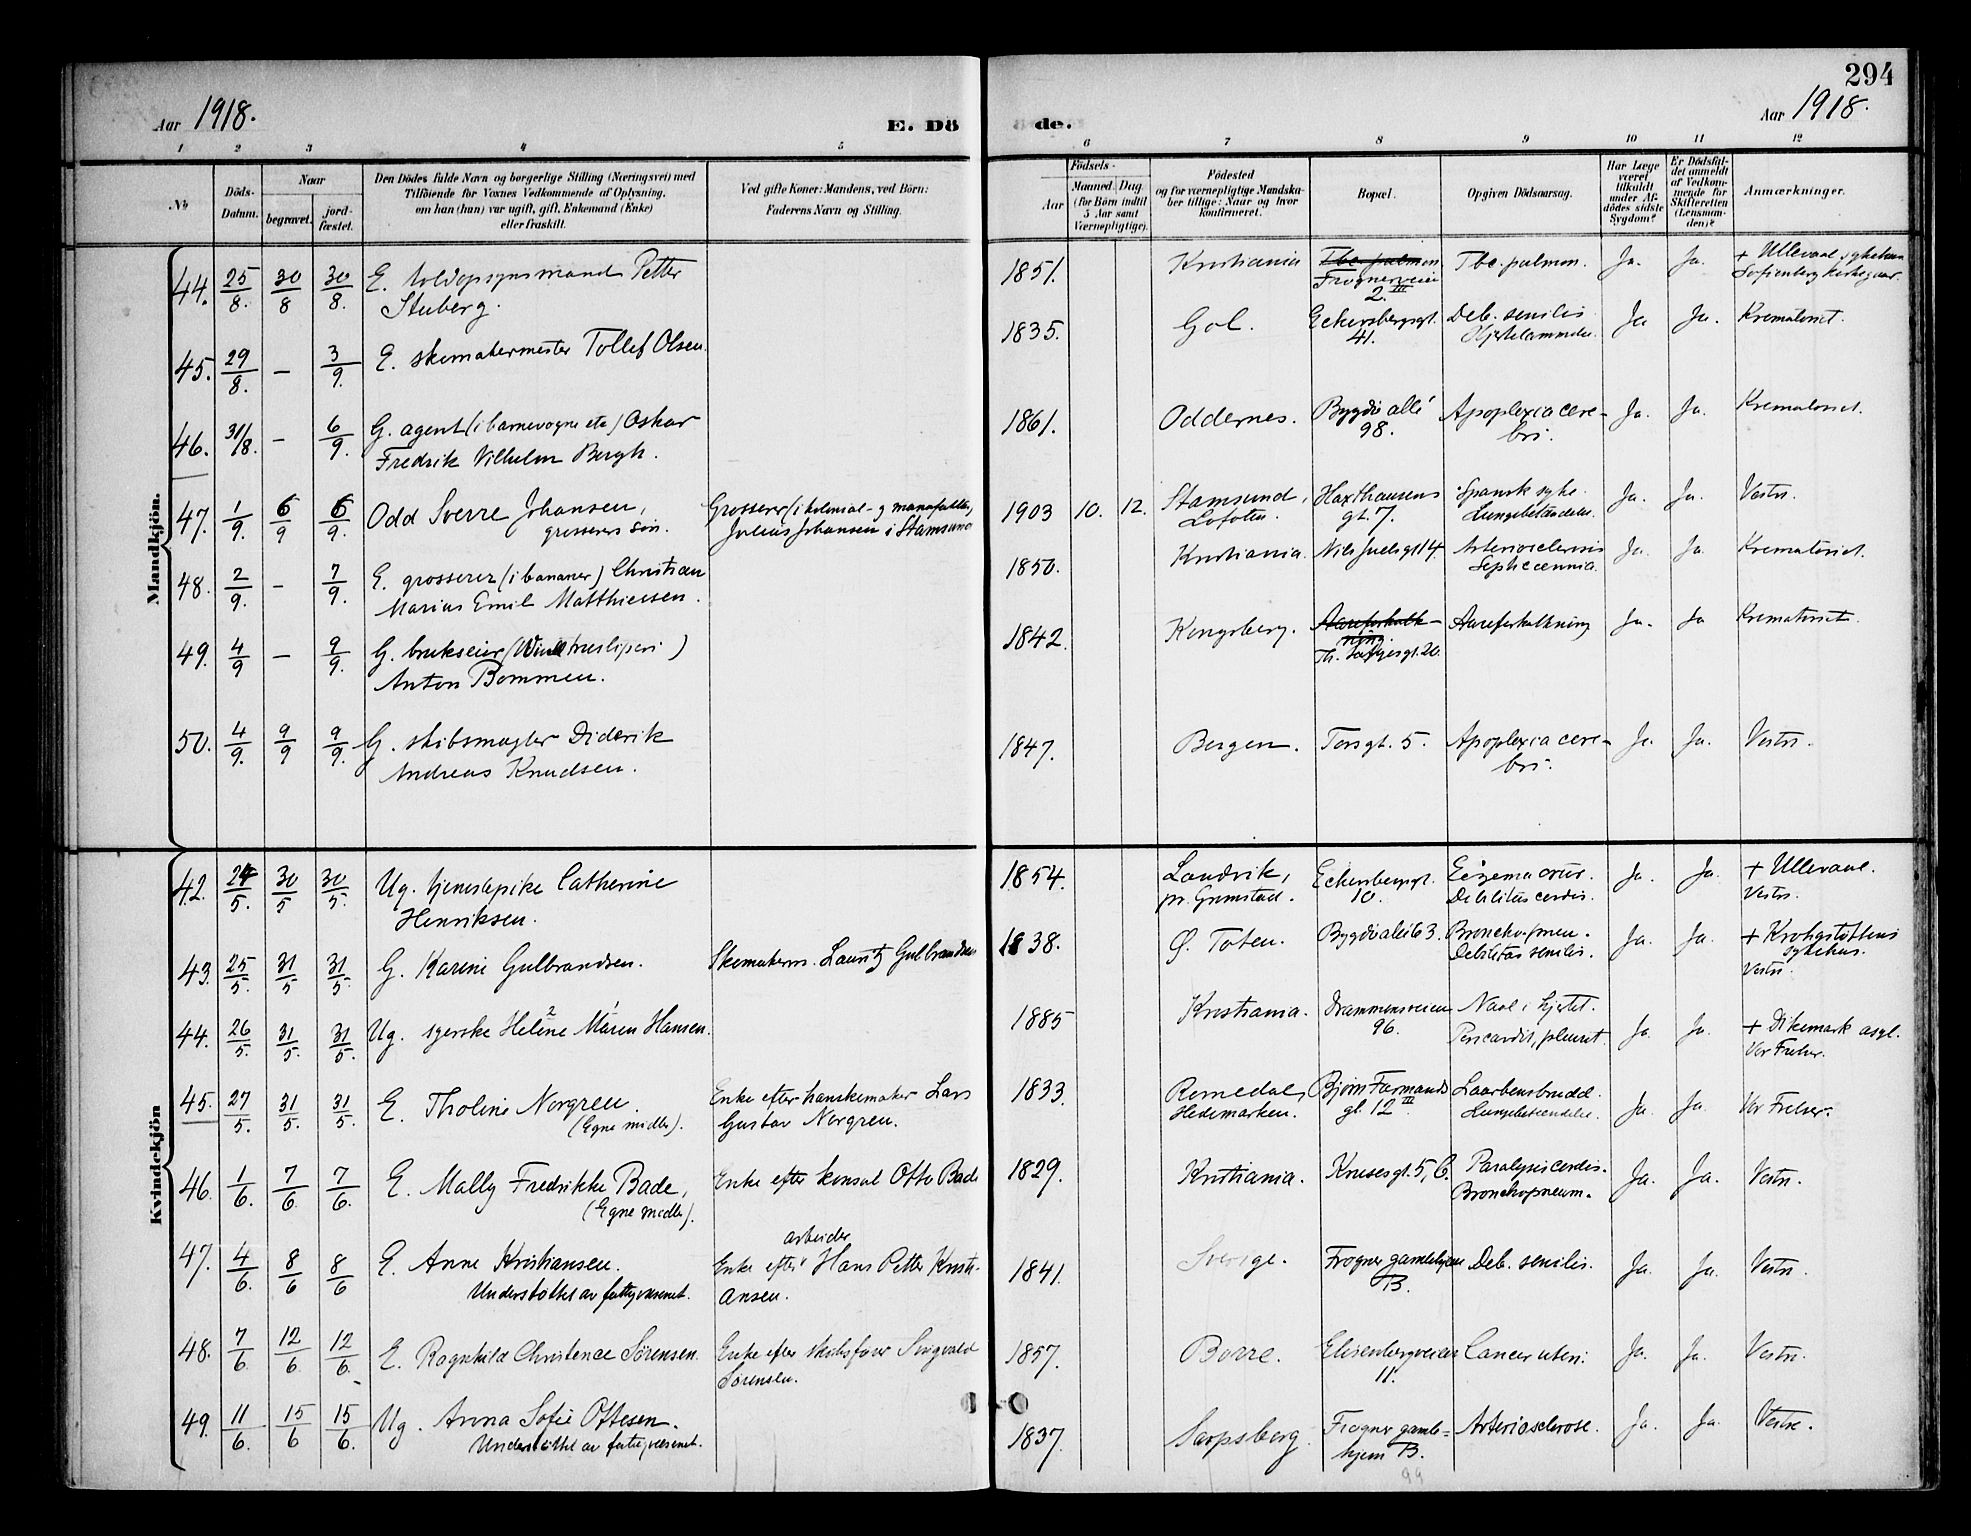 294
Aar 1918.
E. Dö de.
Aar 1918.
1 2 3 4 5 6 7 8 9 10 11 12
No
Döds-Datum.
Naar
begravet.
jord-fæstet.
Den Dödes fulde Navn og borgerlige Stilling (Næringsvei) med
Tilföiende for Voxnes Vedkommende af Oplysning,
om han (hun) var ugift, gift, Enkemand (Enke)
eller fraskilt.
Ved gifte Koner: Mandens, ved Börn:
Faderens Navn og Stilling.
Födsels-
Aar
Maaned Dag
(for Börn indtil
5 Aar samt
Værnepligtige).
Födested
og for værnepligtige Mandska-
ber tillige: Naar og hvor
Konfirmeret.
Bopæl.
Opgiven Dödsaarsag.
Har Læge
været
tilkaldt
under Af-
dödes sidste
Sygdom?
Er Dödsfal-
det anmeldt
af Vedkom-
mende for
Skifteretten
(Lensman-
den)?
Anmærkninger.
Mandkjön.
44. 25/8. 30/8 30/8. E. toldopsynsmand Petter
Stuberg.
1851. Kristiania Tbc. pulmon
Frognerveien
2. III
Tbc. pulmon. Ja. Ja. + Ullevaal sykehus
Sofienberg kirkegaar.
45. 29/8. – 3/9. E. skomakermester Tollef Olsen.
1835. Gol. Eckersbergsgt.
41.
Deb. senilis
Hjertelammelse.
Ja Ja. Krematoriet.
46. 31/8. – 6/9. G. agent (i barnevogne etc) Oskar
Fredrik Vilhelm Bergh.
1861. Oddernes. Bygdø allé
98.
Apoplexia cere-
bri.
Ja. Ja. Krematoriet.
47. 1/9. 6/9 6/9. Odd Sverre Johansen,
grosserers søn.
Grosserer (i kolonial- g manufaktur)
Julius Johansen i Stamsund
1903 10. 12. Stamsund,
Lofoten.
Haxthausens
gt. 7.
Spansk syke.
Lungebetændelse.
Ja. Ja. Vestre.
48. 2/9. – 7/9. E. grosserer (i bananer) Christian
Marius Emil Matthiesen.
1850. Kristiania. Nils Juels gt 14. Arteriosclerosis
Septicæmia.
Ja Ja. Krematoriet.
49. 4/9 – 9/9. G. brukseier (
Anton Bommen.
1842. Kongsberg. Aareforkalk-
ning.
Th. Løftjes gt. 20.
Aareforkalkning Ja. Ja Krematoriet.
50. 4/9. 9/9 9/9. G. skibsmægler Diderik
Andreas Knudsen.
1847. Bergen. Torsgt. 5. Apoplexia cere-
bri.
Ja. Ja. Vestre.
Kvindekjön
42. 24/5. 30/5 30/5. Ug. tjenestepike Catherine
Henriksen.
1854. Landvik,
pr. Grimstad.
Eckersbergsgt.
10.
Eczema crur.
Debilitas cordis.
Ja. Ja. + Ullevaal.
Vestre.
43. 25/5. 31/5 31/5. G. Karine Gulbrandsen.
Skomakerm. Lauritz Gulbrandsen
1838. Ø. Toten. Bygdø allé 63. Broncho-pneu.
Debilitas senilis.
Ja. Ja. + Krohgstøttens
sykehus.
Vestre.
44. 26/5. 31/5. 31/5. Ug. syerske Helene Maren Hansen.
1885 Kristiania. Drammensveien
96.
Naal i hjertet.
Pericardit, pleurit.
Ja Ja. + Dikemark asyl.
Vor Frelser.
45. 27/5. 31/5. 31/5. E. Tholine Norgren.
(Egne midler).
Enke efter hanskemaker Lars
Gustav Norgren.
1833. Romedal,
Hedemarken.
Bjørn Farmands
gt. 12 III
Laarbensbrudd.
Lungebetændelse.
Ja. Ja. Vor Frelser.
46. 1/6. 7/6. 7/6. E. Mally Fredrikke Bade,
(Egne midler).
Enke efter konsul Otto Bade
1829. Kristiania. Kruses gt. 5, B. Paralysis cordis.
Bronchopneum.
Ja. Ja. Vestre.
47. 4/6. 8/6 8/6 E. Anne Kristiansen.
Understøttet av fattigvæsenet.
arbeider
Enke efter Hans Petter Kristi-
ansen.
1841. Sverige. Frogner gamlehjem
B.
Deb. senilis. Ja. Ja. Vestre.
48. 7/6. 12/6 12/6. E. Ragnhild Christence Sørensen.
Enke efter skibsfører Sigvald
Sørensen.
1857. Borre. Elisenbergveien
11.
Cancer uteri. Ja. Ja. Vestre.
49. 11/6. 15/6 15/6. Ug. Anna Sofie Ottesen.
Understøttet av fattigvæsenet.
1837. Sarpsborg. Frogner gamle-
hjem B.
Arteriosclerose. Ja. Ja. Vestre.
99